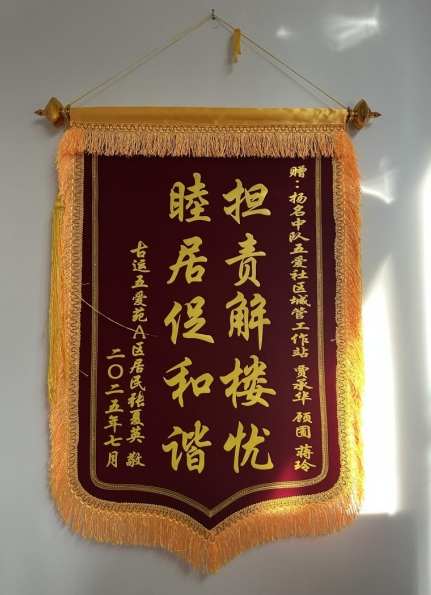 赠：扬名中队五爱社区城管工作站 贾承华 顾围 蒋玲
担责解楼忧
睦居促和谐
古运五爱苑A区居民张夏英 敬
二〇二五年七月